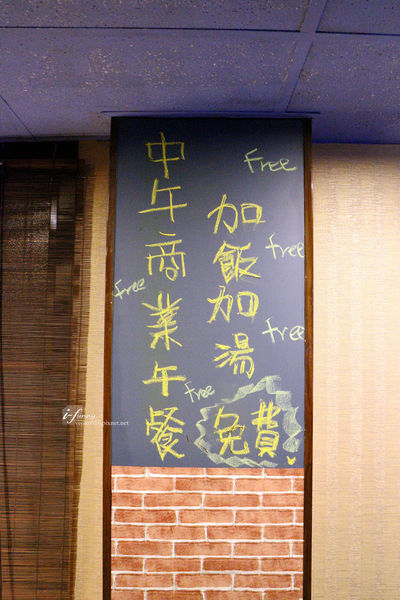 中午商業午餐
加飯加湯
免費
free
free
free
free
free
i-funny